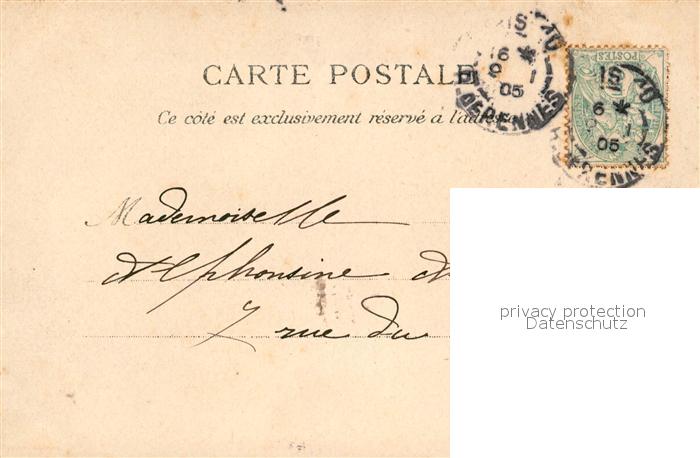 CARTE POSTALE
Ce côté est exclusivement réservé à l'adresse
IS 10
6 * 1
05
DERENNES
POSTES
IS 10
6 * 1
05
Mademoiselle
Alphonsine
7 rue du
privacy protection
Datenschutz